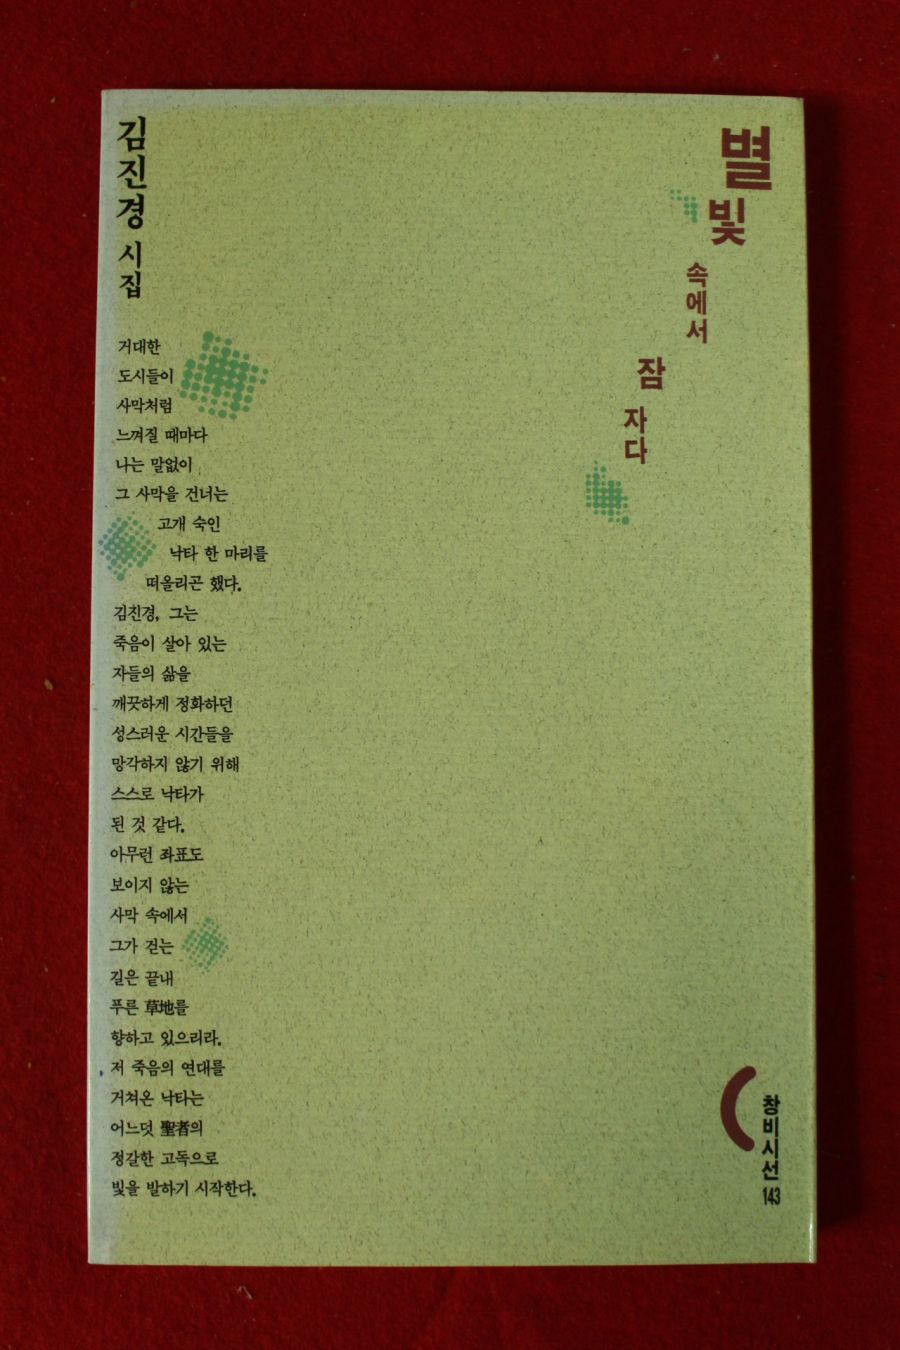 김진경 시집
별빛 속에서 잠자다
거대한
도시들이
사막처럼
느껴질 때마다
나는 말없이
그 사막을 건너는
고개 숙인
낙타 한 마리를
떠올리곤 했다.
김진경, 그는
죽음이 살아 있는
자들의 삶을
깨끗하게 정화하던
성스러운 시간들을
망각하지 않기 위해
스스로 낙타가
된 것 같다.
아무런 좌표도
보이지 않는
사막 속에서
그가 걷는
길은 끝내
푸른 草地를
향하고 있으리라.
저 죽음의 연대를
거쳐온 낙타는
어느덧 聖者의
정갈한 고독으로
빛을 발하기 시작한다.
창비시선 143